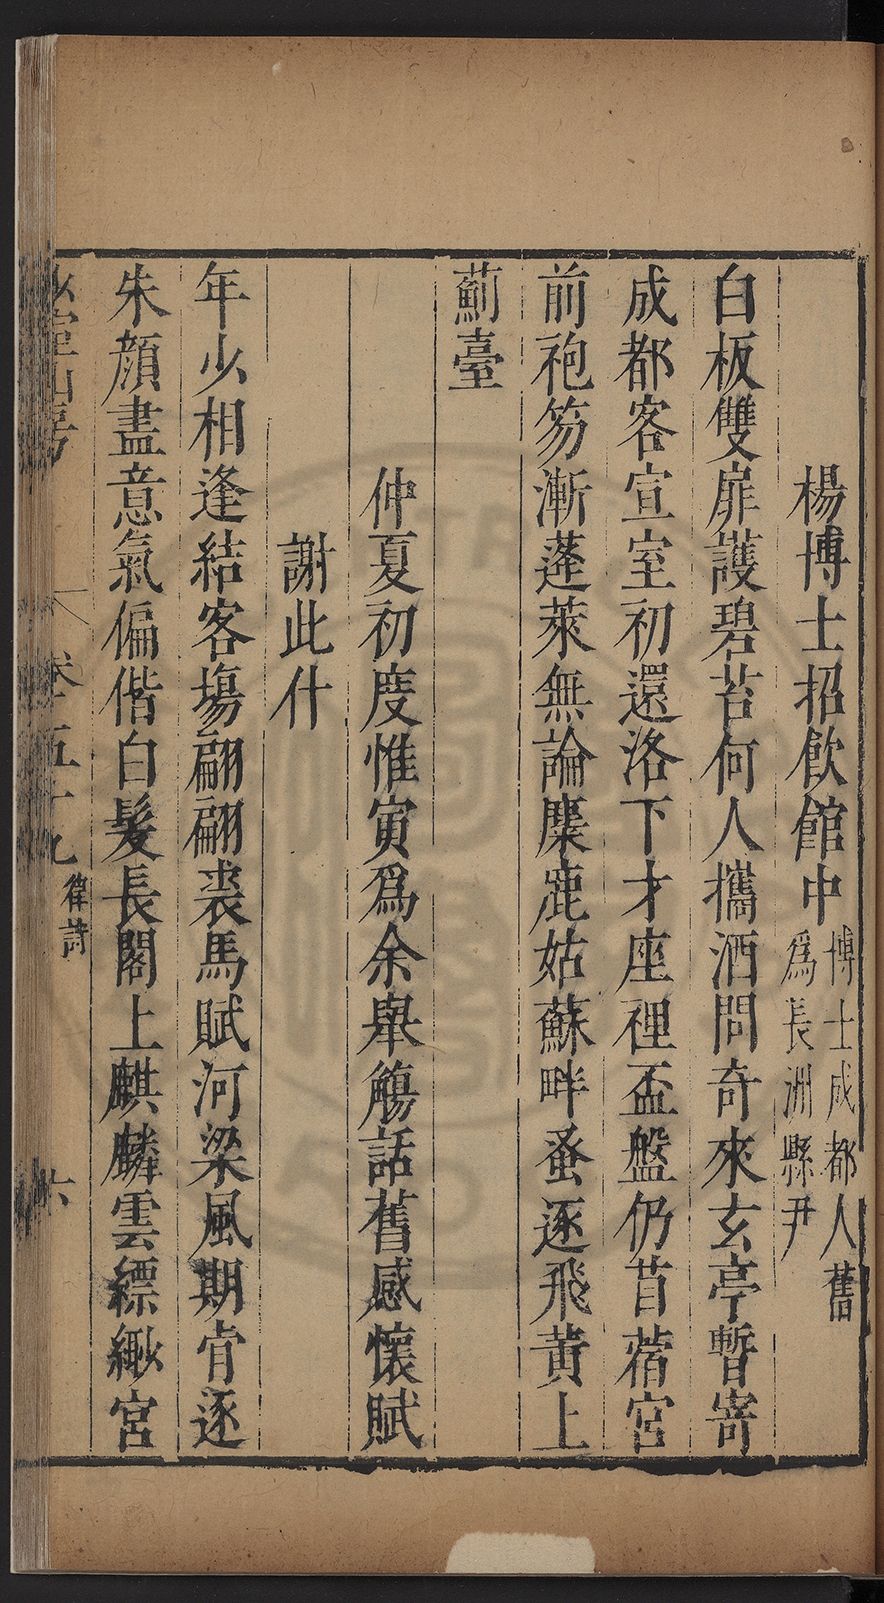 楊博士招飲館中博士成都人舊為長洲縣尹
白板雙扉護碧苔何人攜酒問奇來玄亭暫寄
成都客宣室初還洛下才座裡盃盤仍苜蓿宮
前袍笏漸蓬萊無論麋鹿姑蘇畔蚤逐飛黄上
薊臺
仲夏初度惟寅爲余舉觴話舊感懷賦
謝此什
年少相逢結客塲翩翩裘馬賦河梁風期肯逐
朱顔盡意氣偏偕白髮長閣上麒麟雲縹緲宮
室山房
卷五十九 律詩
六